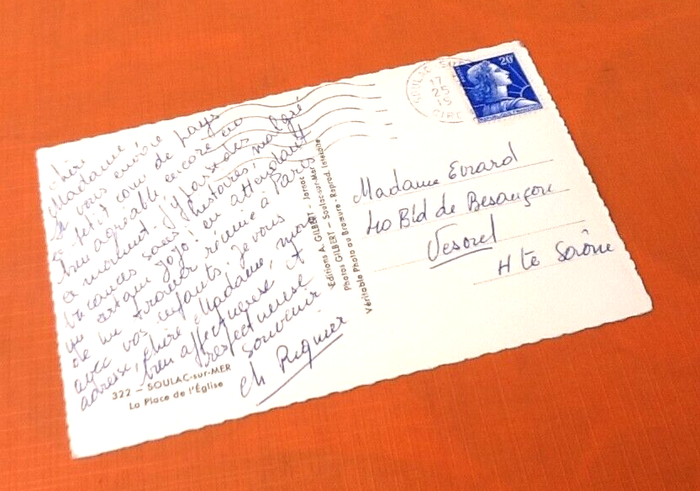 Chère
Madame,
Je vous envoie
ce petit coin de pays
bien agréable encore en
ce moment. J'y passe des
vacances sans histoires, malgré
un
de me trouver réunie à Paris
avec vos enfants. Je vous
adresse, chère Madame, mon
bien affectueux et
respectueuse
souvenir
Ch Reignier
322 — SOULAC-sur-MER
La Place de l'Église
Editions A. GILBERT - Jarnac
Photos GILBERT - Soulac-sur-Mer
Véritable Photo au Bromure Reprod. Interdite
SOULAC S
17
25
15
20F
Madame Evrard
40 Bld de Besançon
Vesoul
Hte Saône